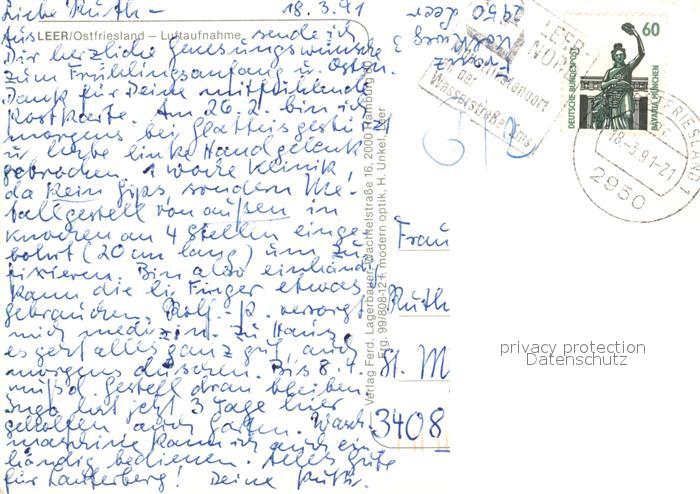 Liebe Ruth – 18.3.91
LEER/Ostfriesland – Luftaufnahme
Aus sende ich
Dir herzliche Genesungswünsche
zum Frühlingsanfang u. Ostern.
Dank für Deine mitfühlende
Postkarte. Am 26.2. bin ich
morgens bei Glatteis gestürzt
u. habe linke Handgelenk
gebrochen. 1 Woche Klinik,
da kein Gips, sondern Me-
tallgestell von außen in
Knochen an 4 Stellen einge-
bohrt (20 cm lang) um zu
fixieren. Bin also einhändig
kann die li Finger etwas
gebrauchen. Rolf-P. versorgt
mich medizin. Zu Haus
es geht alles ganz gut, auch
morgens duschen. Bis 8.4.
muß d. Gestell dran bleiben.
Ingo hat jetzt 3 Tage hier
geholfen auch Garten. Wasch-
maschine kann ich auch ein-
händig bedienen. Alles Gute
für Lauterberg! Deine Ruth.
Franz
2950 Leer
Verlag Ferd. Lagerbauer, Wachtelstraße 16, 2000 Hamburg
Erg. 99/808-12 f. modern optik, H. Unkel, Leer
LEER-
NORD
der
Wasserstraße Ems
60
DEUTSCHE BUNDESPOST
BAVARIA MÜNCHEN
OSTFRIESLAND 1
18.-3.91-21
2950
Frau
Ruth
St. M
3408
privacy protection
Datenschutz